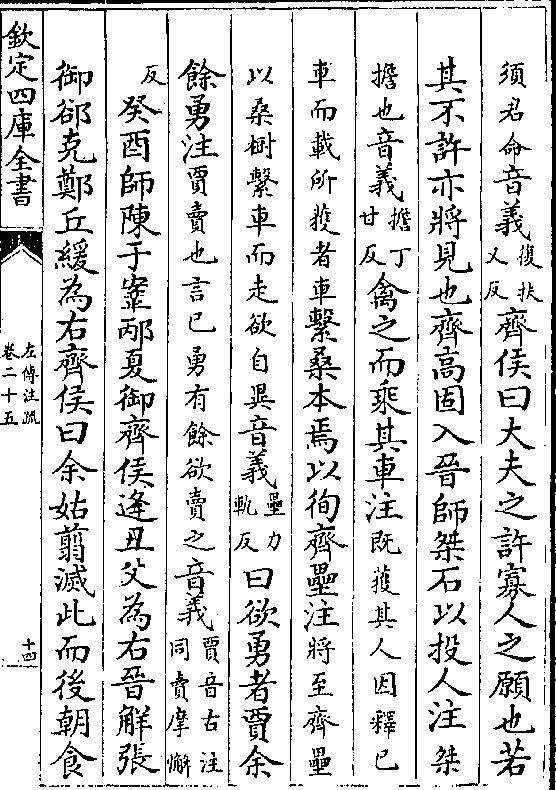 須君命音義復扶又反齊侯曰大夫之許寡人之願也若
其不許亦將見也齊高固入晉師桀石以投人注桀
擔也音義擔丁甘反禽之而乘其車注既獲其人因釋已
車而載所獲者車繫桑本焉以徇齊壘注將至齊壘
以桑樹繫車而走欲自異音義壘力軌反曰欲勇者賈余
餘勇注賈賣也言已勇有餘欲賣之音義賈音古注同賣摩懈
反癸酉師陳于鞌邴夏御齊侯逢丑父為右晉解張
御郤克鄭丘緩為右齊侯曰余姑翦滅此而後朝食
欽定四庫全書
左傳注疏
卷二十五
十四